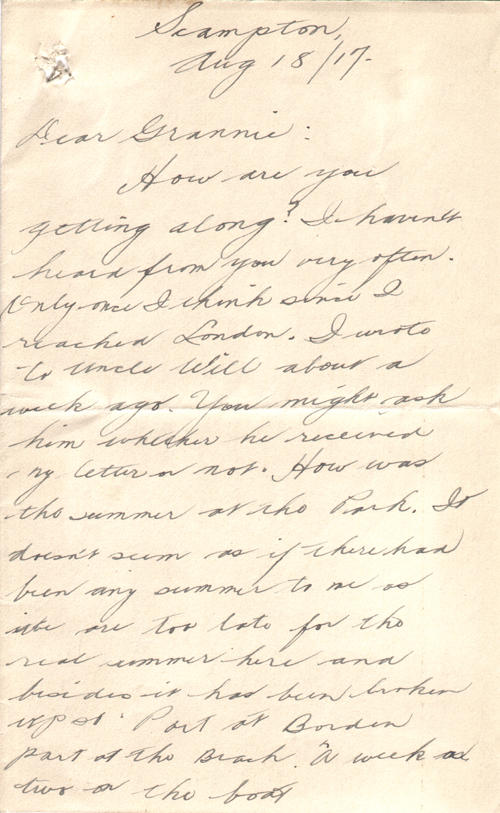 Scampton,
Aug 18/17-
Dear Grannie:
How are you
getting along? I haven't
heard from you very often.
Only once I think since I
reached London. I wrote
to Uncle Will about a
week ago. You might ask
him whether he received
my letter or not. How was
the summer at the Park. It
doesn't seem as if there had
been any summer to me as
we are too late for the
real summer here and
besides it has been broken
up so. Part at Borden
part at the Beach. A week or
two on the boat